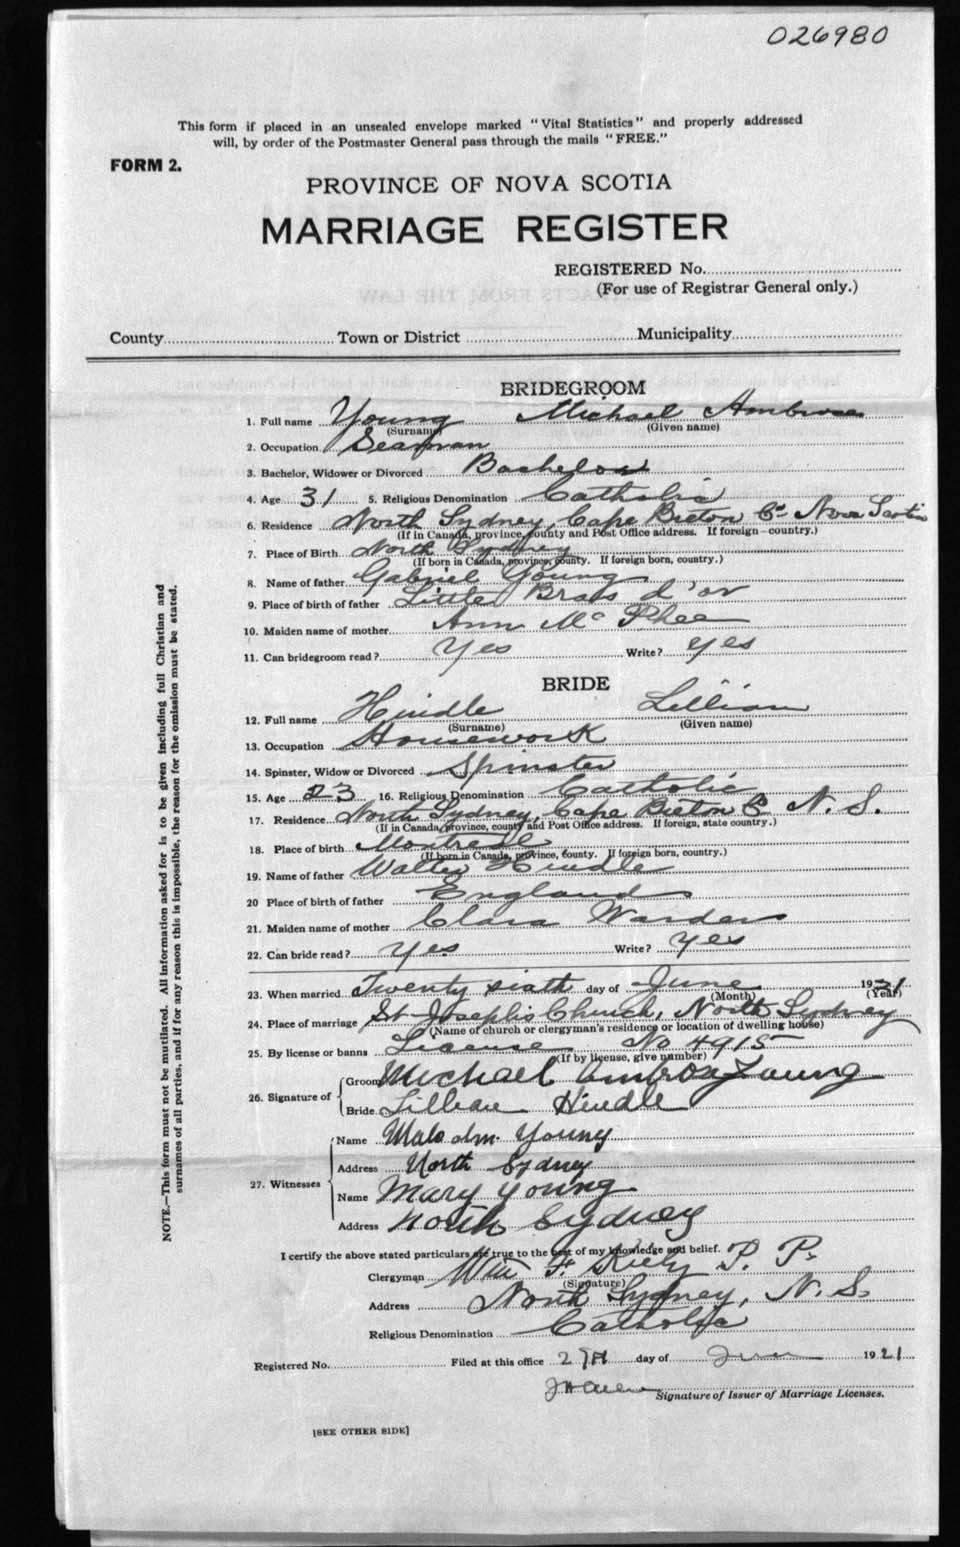 026980
This form if placed in an unsealed envelope marked "Vital Statistics" and properly addressed
will, by order of the Postmaster General pass through the mails "FREE."
FORM 2.
PROVINCE OF NOVA SCOTIA
MARRIAGE REGISTER
REGISTERED No.
(For use of Registrar General only.)
County Town or District Municipality
BRIDEGROOM
1. Full name Young Michael Ambrose
(Surname) (Given name)
2. Occupation Seaman
3. Bachelor, Widower or Divorced Bachelor
4. Age 31 5. Religious Denomination Catholic
6. Residence North Sydney, Cape Breton Co Nova Scotia
(If in Canada, province, county and Post Office address. If foreign—country.)
7. Place of Birth North Sydney
(If born in Canada, province, county. If foreign born, country.)
8. Name of father Gabriel Young
9. Place of birth of father Little Bras d'or
10. Maiden name of mother Ann McPhee
11. Can bridegroom read? Yes Write? yes
BRIDE
12. Full name Hindle Lillian
(Surname) (Given name)
13. Occupation Housework
14. Spinster, Widow or Divorced Spinster
15. Age 23 16. Religious Denomination Catholic
17. Residence North Sydney, Cape Breton Co N. S.
(If in Canada, province, county and Post Office address. If foreign, state country.)
18. Place of birth Montreal
(If born in Canada, province, county. If foreign born, country.)
19. Name of father Walter Hindle
20 Place of birth of father England
21. Maiden name of mother Clara Warders
22. Can bride read? Yes. Write? Yes
23. When married Twenty sixth day of June 19
(Month) (Year)
24. Place of marriage St Joseph's Church, North Sydney
(Name of church or clergyman's residence or location of dwelling house)
25. By license or banns License No 4915
(If by license, give number)
26. Signature of
Groom Michael Ambrose Young
Bride. Lillian Hindle
27. Witnesses
Name Malcolm Young
Address North Sydney
Name Mary Young
Address North Sydney
I certify the above stated particulars are true to the best of my knowledge and belief.
Clergyman Wm F. Kiely P. P.
(Signature)
Address North Sydney, N. S.
Religious Denomination Catholic
Registered No. Filed at this office 27th day of June 1921
Signature of Issuer of Marriage Licenses.
[SEE OTHER SIDE]
NOTE.—This form must not be mutilated. All information asked for is to be given including full Christian and
surnames of all parties, and if for any reason this is impossible, the reason for the omission must be stated.